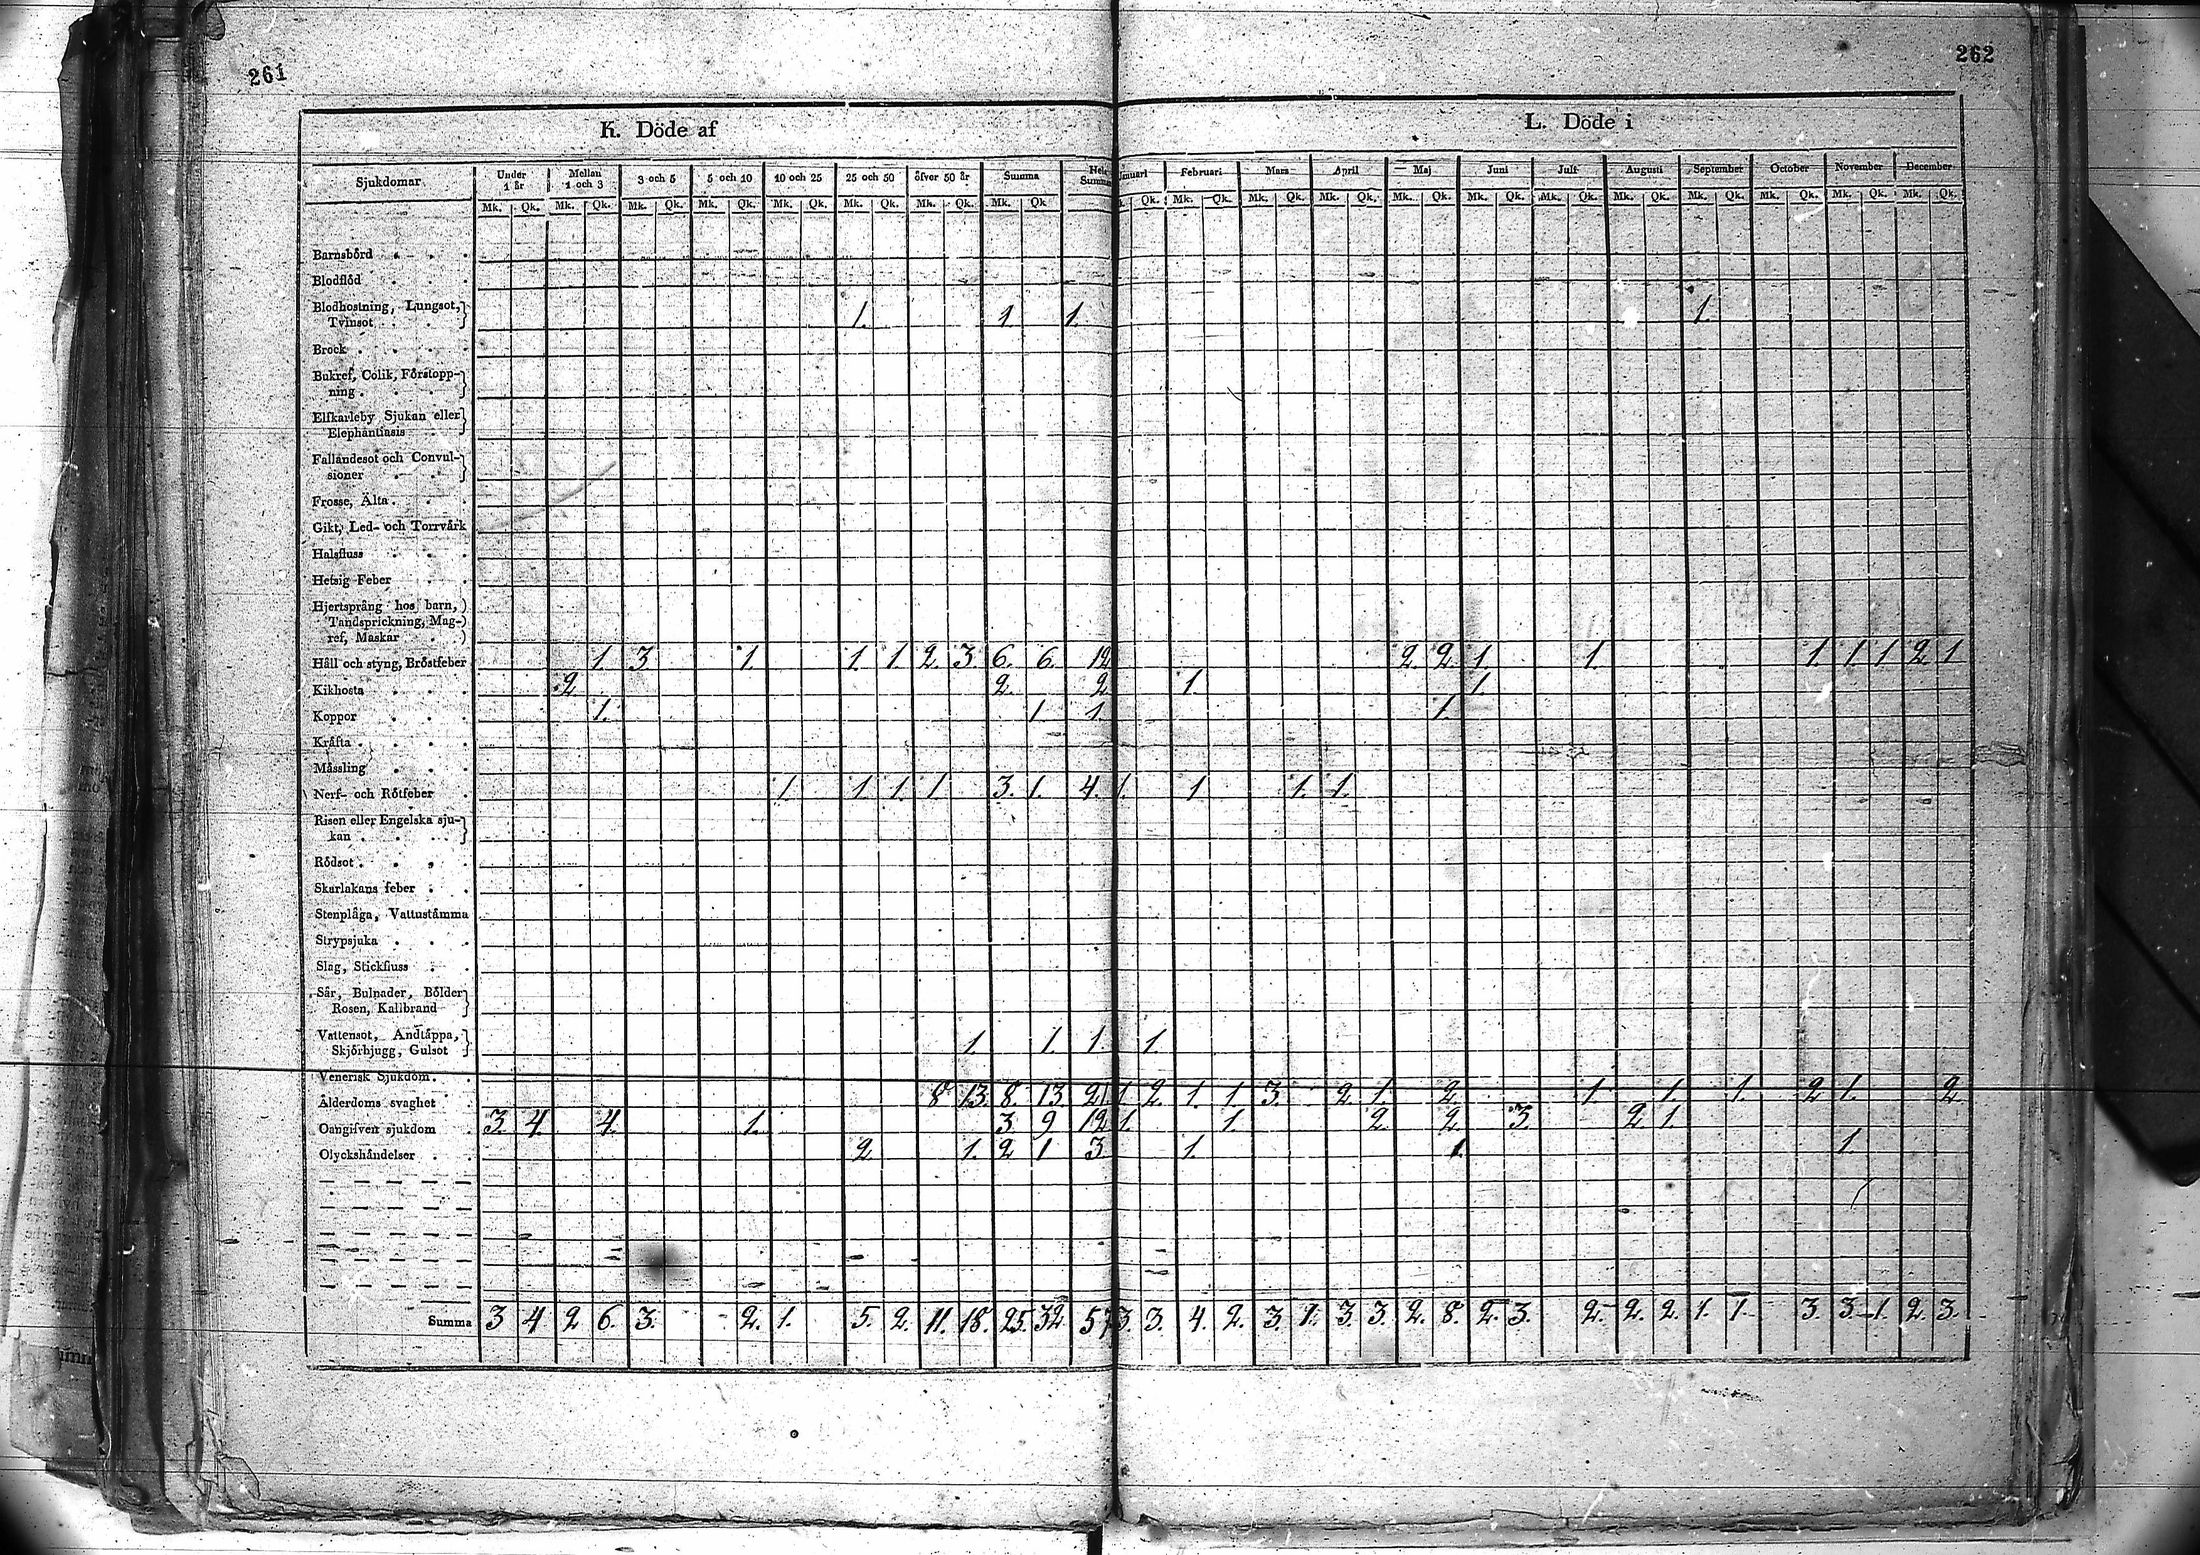 261
262
K. Döde af
L. Döde i
Sjukdomar Under 1 år Mellan 1 och 3 3 och 5 5 och 10 10 och 25 25 och 50 öfver 50 år Summa Hela Summa Januari Februari Mars April Maj Juni Juli Augusti September October November December
Mk. Qk. Mk. Qk. Mk. Qk. Mk. Qk. Mk. Qk. Mk. Qk. Mk. Qk. Mk. Qk Qk. Mk. Qk. Mk. Qk. Mk. Qk. Mk. Qk. Mk. Qk. Mk. Qk. Mk. Qk. Mk. Qk. Mk. Qk. Mk. Qk. Mk. Qk.
Barnsbörd
Blodflöd
Blodhostning, Lungsot,
Tvinsot 1. 1. 1. 1.
Brock
Bukref, Colik, Förstopp-
ning
Elfkarleby Sjukan eller
Elephantiasis
Fallandesot och Convul-
sioner
Frosse, Älta
Gikt, Led- och Torrvärk
Halsfluss
Hetsig Feber
Hjertsprång hos barn,
Tandsprickning, Mag-
ref, Maskar
Håll och styng, Bröstfeber 1. 3 1. 1. 1. 2. 3. 6. 6. 12 2. 2. 1. 1. 1. 1. 1 2 1
Kikhosta 2 2. 2 1 1.
Koppor 1. 1 1 1.
Kräfta
Mässling
Nerf- och Rötfeber 1. 1. 1. 1. 3. 1. 4. 1. 1 1. 1.
Risen eller Engelska sju-
kan
Rödsot
Skarlakans feber
Stenplåga, Vattustämma
Strypsjuka
Slag, Stickfluss
Sår, Bulnader, Bölder
Rosen, Kallbrand
Vattensot, Andtäppa,
Skjörbjugg, Gulsot 1. 1. 1. 1.
Venerisk Sjukdom
Ålderdoms svaghet 8 13. 8. 13. 21 1 2. 1. 1 3. 2. 1. 2 1 1. 1. 2 1. 2
Oangifven sjukdom 3. 4. 4. 1. 3. 9 12 1. 1. 2. 2. 3. 2 1.
Olyckshändelser 2 1. 2 1 3 1. 1. 1.
Summa 3 4 2 6. 3. 2. 1. 5. 2. 11. 18. 25. 32. 57 3. 3. 4. 2. 3. 1. 3. 3. 2. 8. 2. 3. 2. 2. 2. 1. 1. 3. 3. 1. 2. 3.